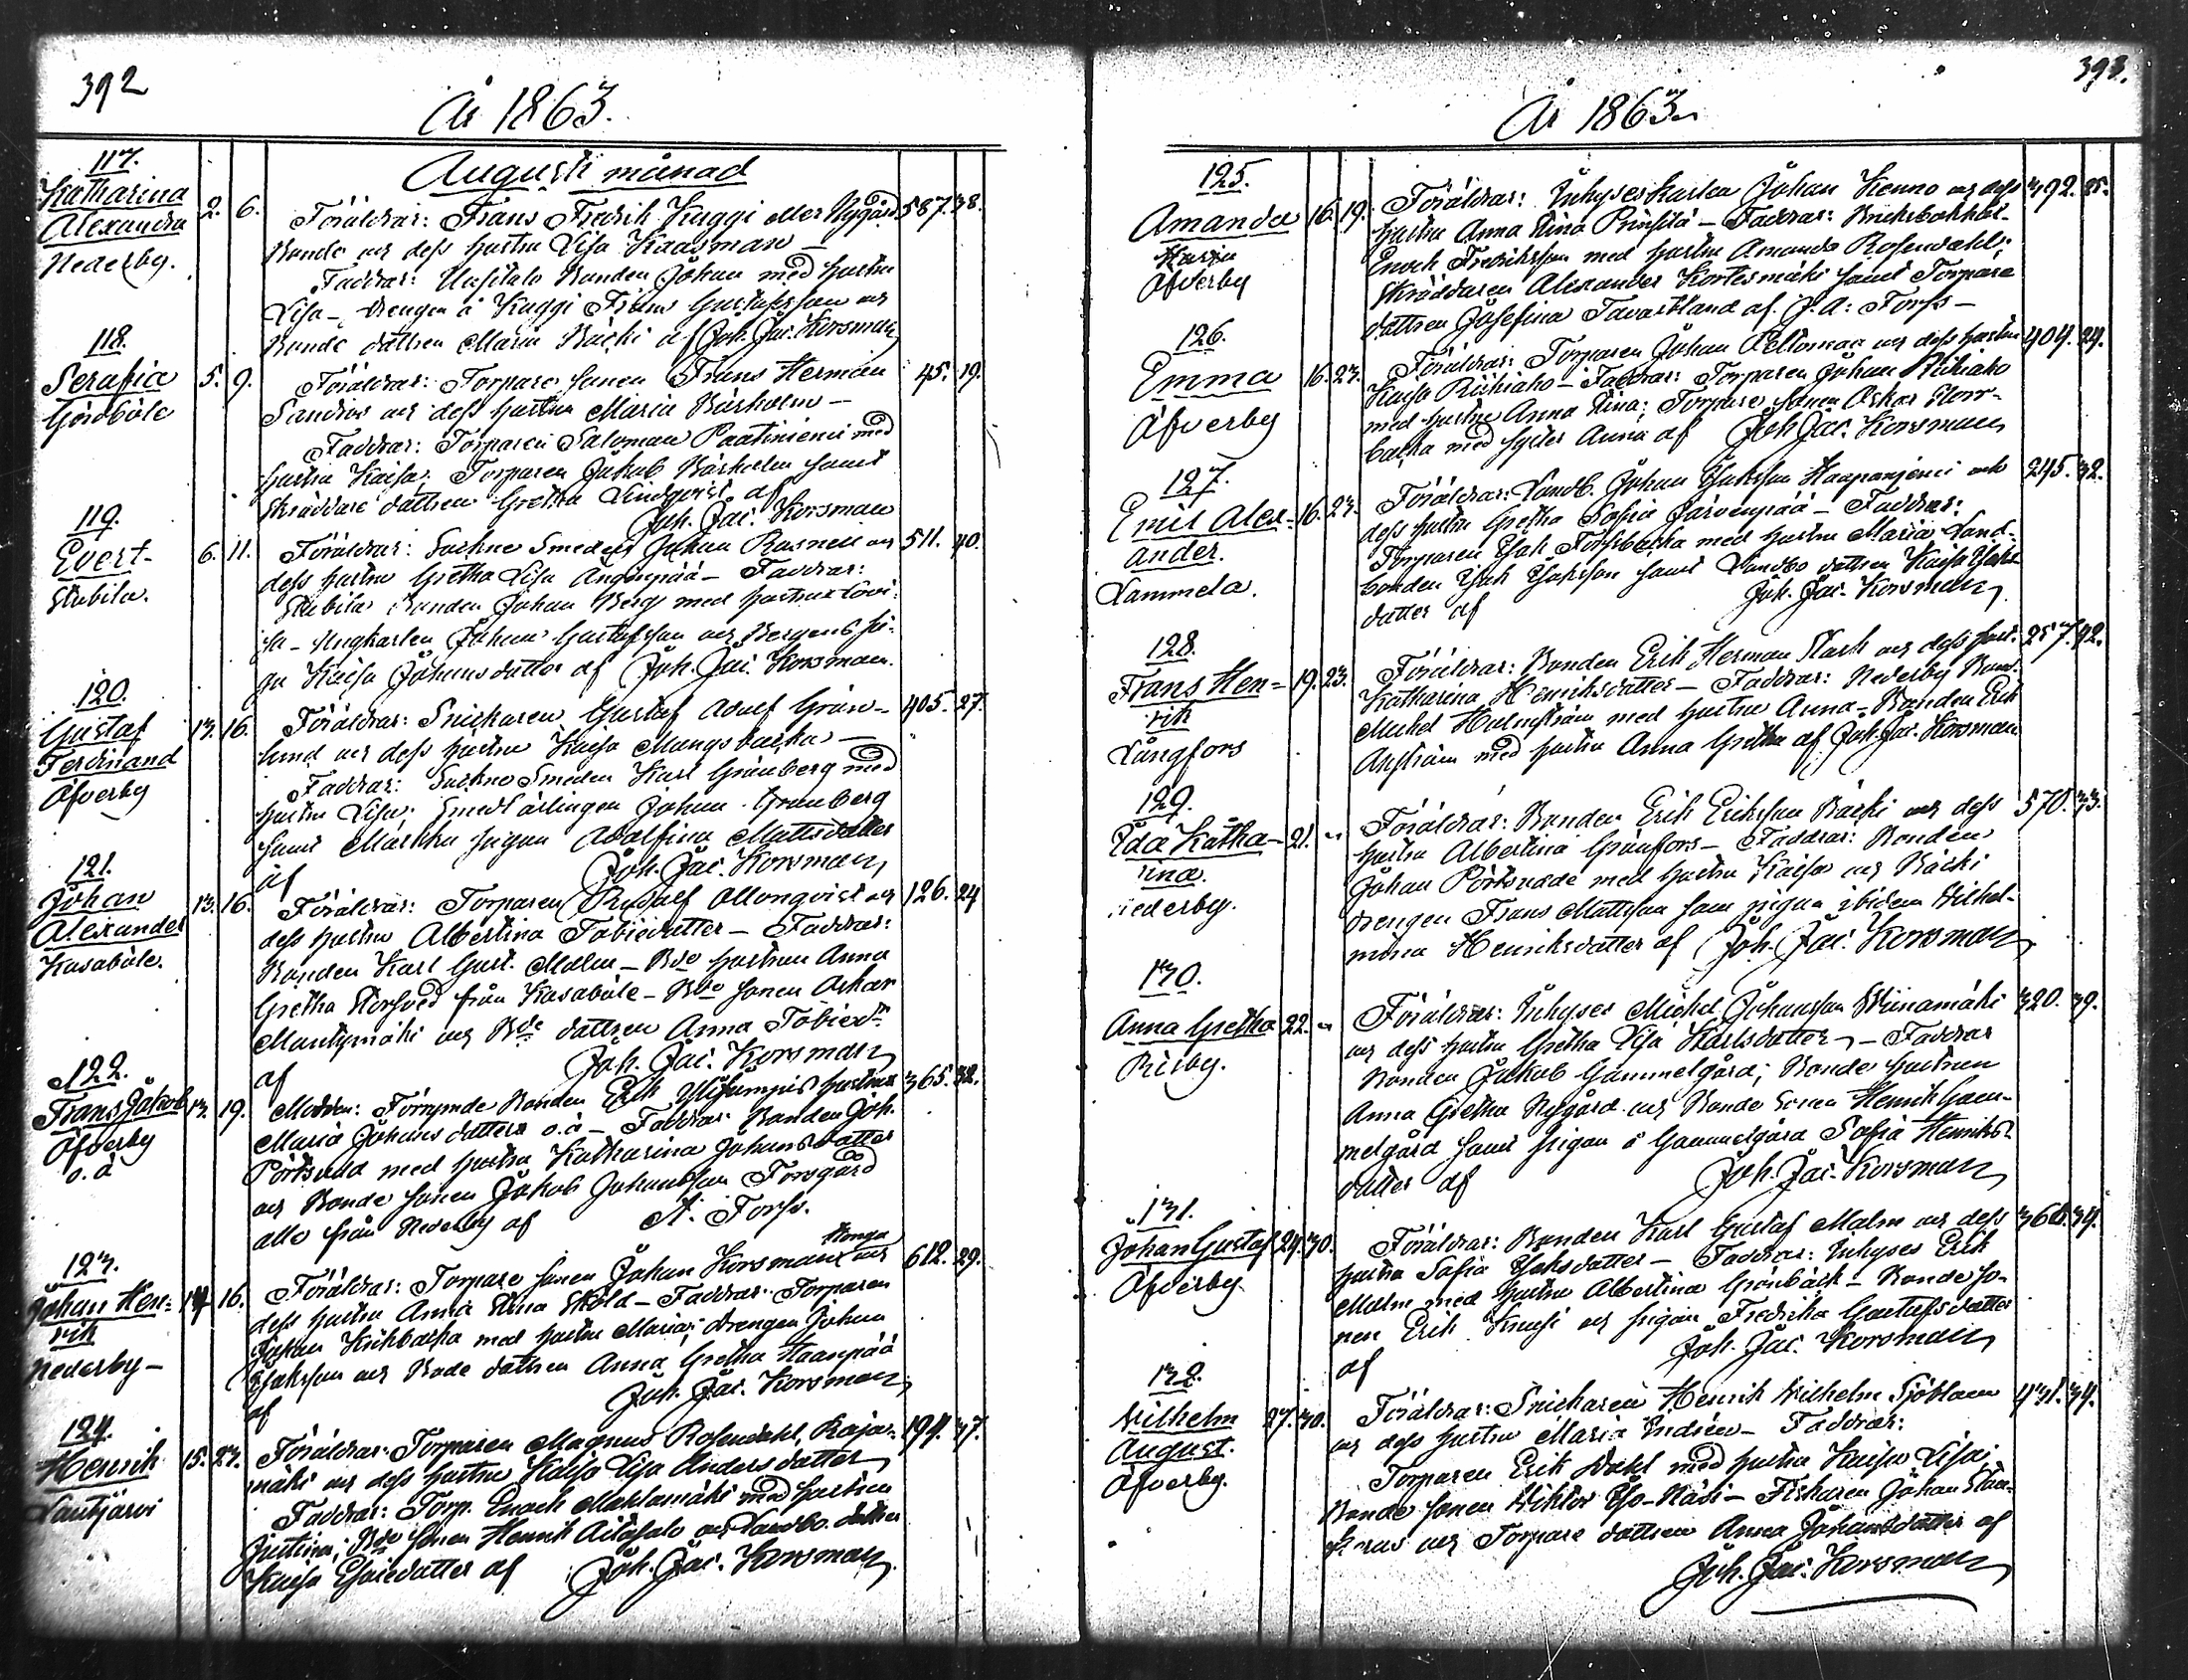 392
År 1863.
Augusti månad
117.
Katharina
Alexandra
Nederby.
2. 6.
Föräldrar: Frans Fredrik Kuggi eller Nygård 587. 38.
Bonde och dess hustru Lisa Kaasman —
Faddrar: Uusitalo Bonden Johan med hustru
Lisa – drengen å Kuggi Frans Gustafsson och
Bonde dattren Maria Bäcki af Joh. Jac. Korsman
118.
Serafia
Gördböle
5. 9.
Föräldrar: Torpare sonen Frans Herman 45. 19.
Sandros och dess hustru Maria Bårholm –
Faddrar: Torparen Saloman Paatiniemi med
hustru Kaisa; Torparen Jakob Bårholm samt
Skräddare dattren Gretha Lindqvist af
Joh. Jac. Korsman
119.
Evert
Stubila.
6. 11.
Föräldrar: Sockne Smeden Johan Rosnell och 511. 40.
dess hustru Gretha Lisa Ängenpää – Faddrar:
Stubila Bonden Johan Berg med hustru Lovi-
sa – Ungkarlen Johan Gustafsson och Bergens pi-
ga Kaisa Johansdatter af Joh. Jac. Korsman.
120.
Gustaf
Ferdinand
Öfverby
13. 16.
Föräldrar: Snickaren Gustaf Adolf Grön- 405. 27.
lund och dess hustru Kaisa Mangsbacka –
Faddrar: Sockne Smeden Karl Grönberg med
hustru Lisa; Smedlärlingen Johan Grönberg
samt Markku pigan Adolfina Mattsdatter
af Joh. Jac. Korsman
121.
Johan
Alexander
Kasaböle.
13. 16.
Föräldrar: Torparen Rudolf Ollonqvist och 126. 24
dess hustru Albertina Tobiedatter – Faddrar:
Bonden Karl Gust. Malm – Bde hustrun Anna
Gretha Storsved från Kasaböle – Bde sonen Oskar
Mantymäki och Bde dattren Anna Tobiedr
af Joh. Jac. Korsman
122.
Frans Jakob
Öfverby
o.ä
13. 19.
Modren: Förrymde Bonden Erik hustru 365. 32.
Maria Johansdatter o.ä – Faddrar Bonden Joh.
Pörtsvad med hustru Katharina Johansdatter
och Bonde sonen Jakob Johansson Forsgård
alla från Nederby af A. Forss.
123.
Johan Hen-
rik
Nederby –
14 16.
Föräldrar: Torpare sonen Johan Korsman och 612. 29.
dess hustru Anna Stina Sköld – Faddrar: Torparen
Johan Kichbacka med hustru Maria; drengen Johan
Isaksson och Bode dattren Anna Gretha Haanpää
af Joh. Jac. Korsman
124.
Henrik
Lautjärvi
15. 23.
Föräldrar: Torparen Magnus Rosendahl, Raja- 194. 37.
mäki och dess hustru Kaisa Lisa Andersdatter
Faddrar: Torp. Enoch Mahlamäki med hustrun
Justina; Bde sonen Henrik Aitasalo och Landbo dattren
Kaisa Esaiedatter af Joh. Jac. Korsman
393.
År 1863
125.
Amanda
Maria
Öfverby
16. 19.
Föräldrar: Inhyseskarlen Johan Kenno och dess 392. 25.
hustru Anna Stina Prinsilä – Faddrar: Bruksbokhål-
Enoch Fredriksson med hustru Amanda Rosendahl;
Skräddaren Alexander Kortesmäki samt Torpare
dattren Josefina Tavastland af J. A: Forss –
126.
Emma
Öfverby
16. 23.
Föräldrar: Torparen Johan Peltomaa och dess hustru 404. 24.
Kaisa Riihiaho – Faddrar: Torparen Johan Riihiaho
med hustru Anna Stina; Torpare sonen Oskar Storr-
backa med syster Anna af Joh Jac. Korsman
127.
Emil Alex-
ander.
Lammela.
16. 23.
Föräldrar: Landb. Johan Isaksson Haapaniemi och 245. 32.
dess hustru Gretha Sofia Järvenpää – Faddrar:
Torparen Isak Forsbacka med hustru Maria Land-
bonden Isak Isaksson samt Landbo dattren Kaisa Isaks-
datter af Joh. Jac. Korsman
128.
Frans Hen-
rik
Långfors
19. 23.
Föräldrar: Bonden Erik Herman Stark och dess hust. 257. 42.
Katharina Henriksdatter – Faddrar: Nederby Bond.
Mickel Holmström med hustru Anna – Bonden Erik
Anström med hustru Anna Gretha af Joh. Jac. Korsman
129.
Ida Katha-
rina.
Nederby.
21. "
Föräldrar: Bonden Erik Eriksson Bäcki och dess 570. 33.
hustru Albertina Grönfors – Faddrar: Bonden
Johan Pörtsvade med hustru Kaisa och Bäcki
drengen Frans Mattsson sam pigan ibidem Wilhel-
mina Henriksdatter af Joh. Jac. Korsman
130.
Anna Gretha
Risby.
22. "
Föräldrar: Inhyses Michel Johansson Wiinamäki 320. 39.
och dess hustru Gretha Lisa Karlsdatter – Faddrar
Bonden Jakob Gammelgård; Bonde hustrun
Anna Gretha Nygård och Bonde sonen Henrik Gam-
melgård samt pigan å Gammelgård Sofia Henriks-
datter af Joh. Jac. Korsman
131.
Johan Gustaf
Öfverby.
24. 30.
Föräldrar: Bonden Karl Gustaf Malm och dess 366. 34.
hustru Sofia Isaksdatter – Faddrar: Inhyses Erik
Malm med hustru Albertina Grönbäck – Bonde so-
nen Erik Knusi och pigan Fredrika Gustafsdatter
af Joh. Jac. Korsman
132.
Wilhelm
August.
Öfverby.
27. 30.
Föräldrar: Snickaren Henrik Wilhelm Sjöblom 431. 34.
och dess hustru Maria Indrén – Faddrar:
Torparen Erik Dahl med hustru Kaisa Lisa;
Bonde sonen Wiktor Iso-Näsi – Fiskaren Johan
och Torpare dattren Anna Johansdatter af
Joh. Jac. Korsman